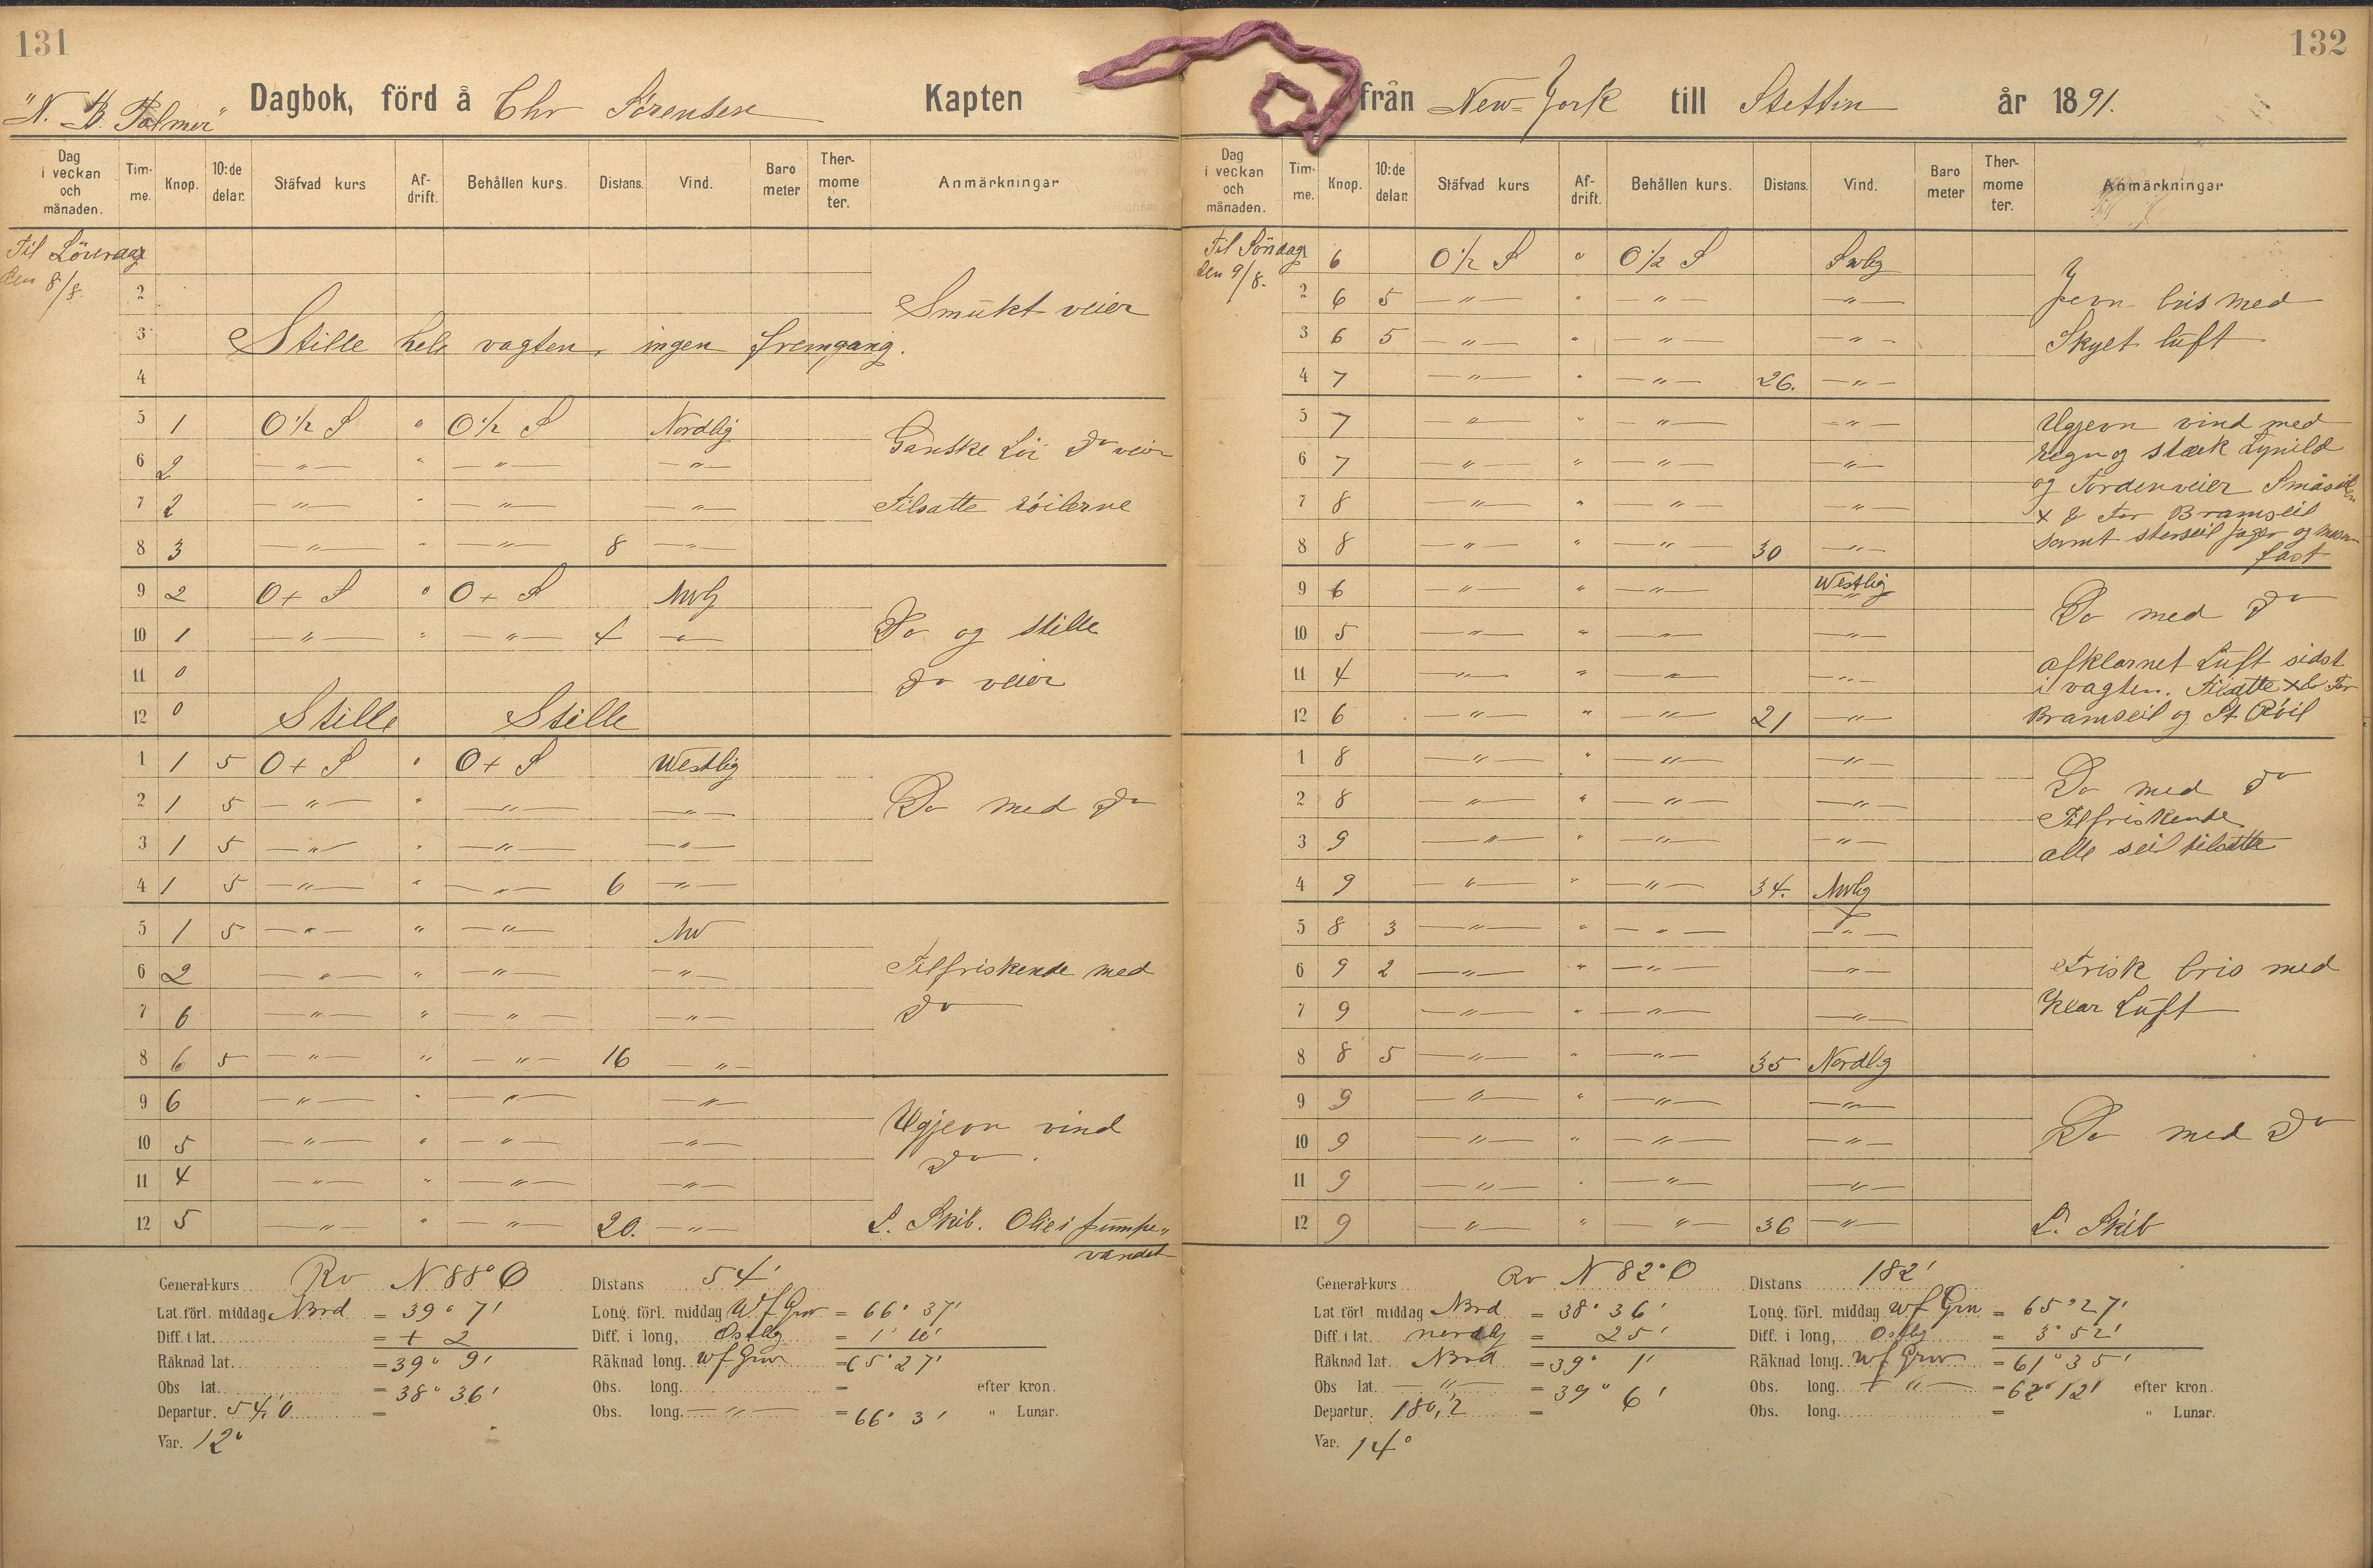 131
"N. B. Palmer" Dagbok, förd å Chr Sörensen Kapten
Dag i veckan och månaden. Tim- me. Knop. 10:de delar. Stäfvad kurs Af- drift. Behållen kurs. Distans. Vind. Baro meter Ther- mome ter. Anmärkningar
Til Löverdag 1
den 8/8. 2 Smukt veier
3 Stille hele vagten, ingen fremgang.
4
5 1 O 1/2 S " O 1/2 S Nordlig Ganske Löi Do veir
6 2 — " — " — " — — " —
7 2 — " — " — " — — " — Tilsatte röilerne
8 3 — " — " — " — 8 — " —
9 2 O + S " O + S NWlg
10 1 — " — " — " — 4 — " — Do og stille
11 0 Do veier
12 0 Stille Stille
1 1 5 O + S " O + S Westlig
2 1 5 — " — " — " — — " — Do med Do
3 1 5 — " — " — " — — " —
4 1 5 — " — " — " — 6 — " —
5 1 5 — " — " — " — NW
6 2 — " — " — " — — " — Tilfriskende med
7 6 — " — " — " — — " — Do
8 6 5 — " — " — " — 16 — " —
9 6 — " — " — " — — " — Ugjevn vind
10 5 — " — " — " — — " — Do.
11 4 — " — " — " — — " —
12 5 — " — " — " — 20. — " — L. Skib. Olie i pumpe„
vandet
General-kurs Rv N 88° O Distans 54'
Lat. förl. middag Nord = 39° 7' Long. förl. middag W f Grw = 66° 37'
Diff. i lat. = + 2 Diff. i long, Ostlig = 1° 10'
Räknad lat. = 39° 9' Räknad long. W f Grw = 65° 27'
Obs lat. = 38° 36' Obs. long. = efter kron.
Departur. 54,0 = Obs. long. — " — = 66° 3' " Lunar.
Var. 12°
132
från New-York till Stettin år 1891.
Dag i veckan och månaden. Tim- me. Knop. 10:de delar. Stäfvad kurs Af- drift. Behållen kurs. Distans. Vind. Baro meter Ther- mome ter. Anmärkningar
Til Söndag 1 6 O 1/2 S " O 1/2 S Swlig
den 9/8. 2 6 5 — " — " — " — — " — Jevn bris med
3 6 5 — " — " — " — — " — Skyet luft
4 7 — " — " — " — 26. — " —
5 7 — " — " — " — — " — Ugjevn vind med
6 7 — " — " — " — — " — regn og stærk Lynild
7 8 — " — " — " — — " — og Tordenveier Småseilen
× & For Bramseil
8 8 — " — " — " — 30 — " — samt storseil jager og
fast
9 6 — " — " — " — Westlig Do med Do
10 5 — " — " — " — — " —
11 4 — " — " — " — — " — afklarnet Luft sidst
i vagten. Tilsatte × & For
12 6 — " — " — " — 21 — " — Bramseil og St Röil
1 8 — " — " — " — — " — Do med Do
2 8 — " — " — " — — " — Tilfriskende
3 9 — " — " — " — — " — alle seil tilsatte
4 9 — " — " — " — 34. NWlig
5 8 3 — " — " — " — — " —
6 9 2 — " — " — " — — " — Frisk bris med
7 9 — " — " — " — — " — Klar Luft
8 8 5 — " — " — " — 35 Nordlig
9 9 — " — " — " — — " —
10 9 — " — " — " — — " — Do med Do
11 9 — " — " — " — — " —
12 9 — " — " — " — 36 — " — L. Skib
General-kurs Rv N 82° O Distans 182'
Lat förl middag Nord = 38° 36' Long. förl. middag W f Grw = 65° 27'
Diff. i lat. nordlg = 25' Diff. i long, Ostlig = 3° 52'
Räknad lat. Nord = 39° 1' Räknad long. W f Grw = 61° 35'
Obs lat. — " — = 39° 6' Obs. long. — " — = 62° 12' efter kron.
Departur. 180,2 = Obs. long. = " Lunar.
Var. 14°